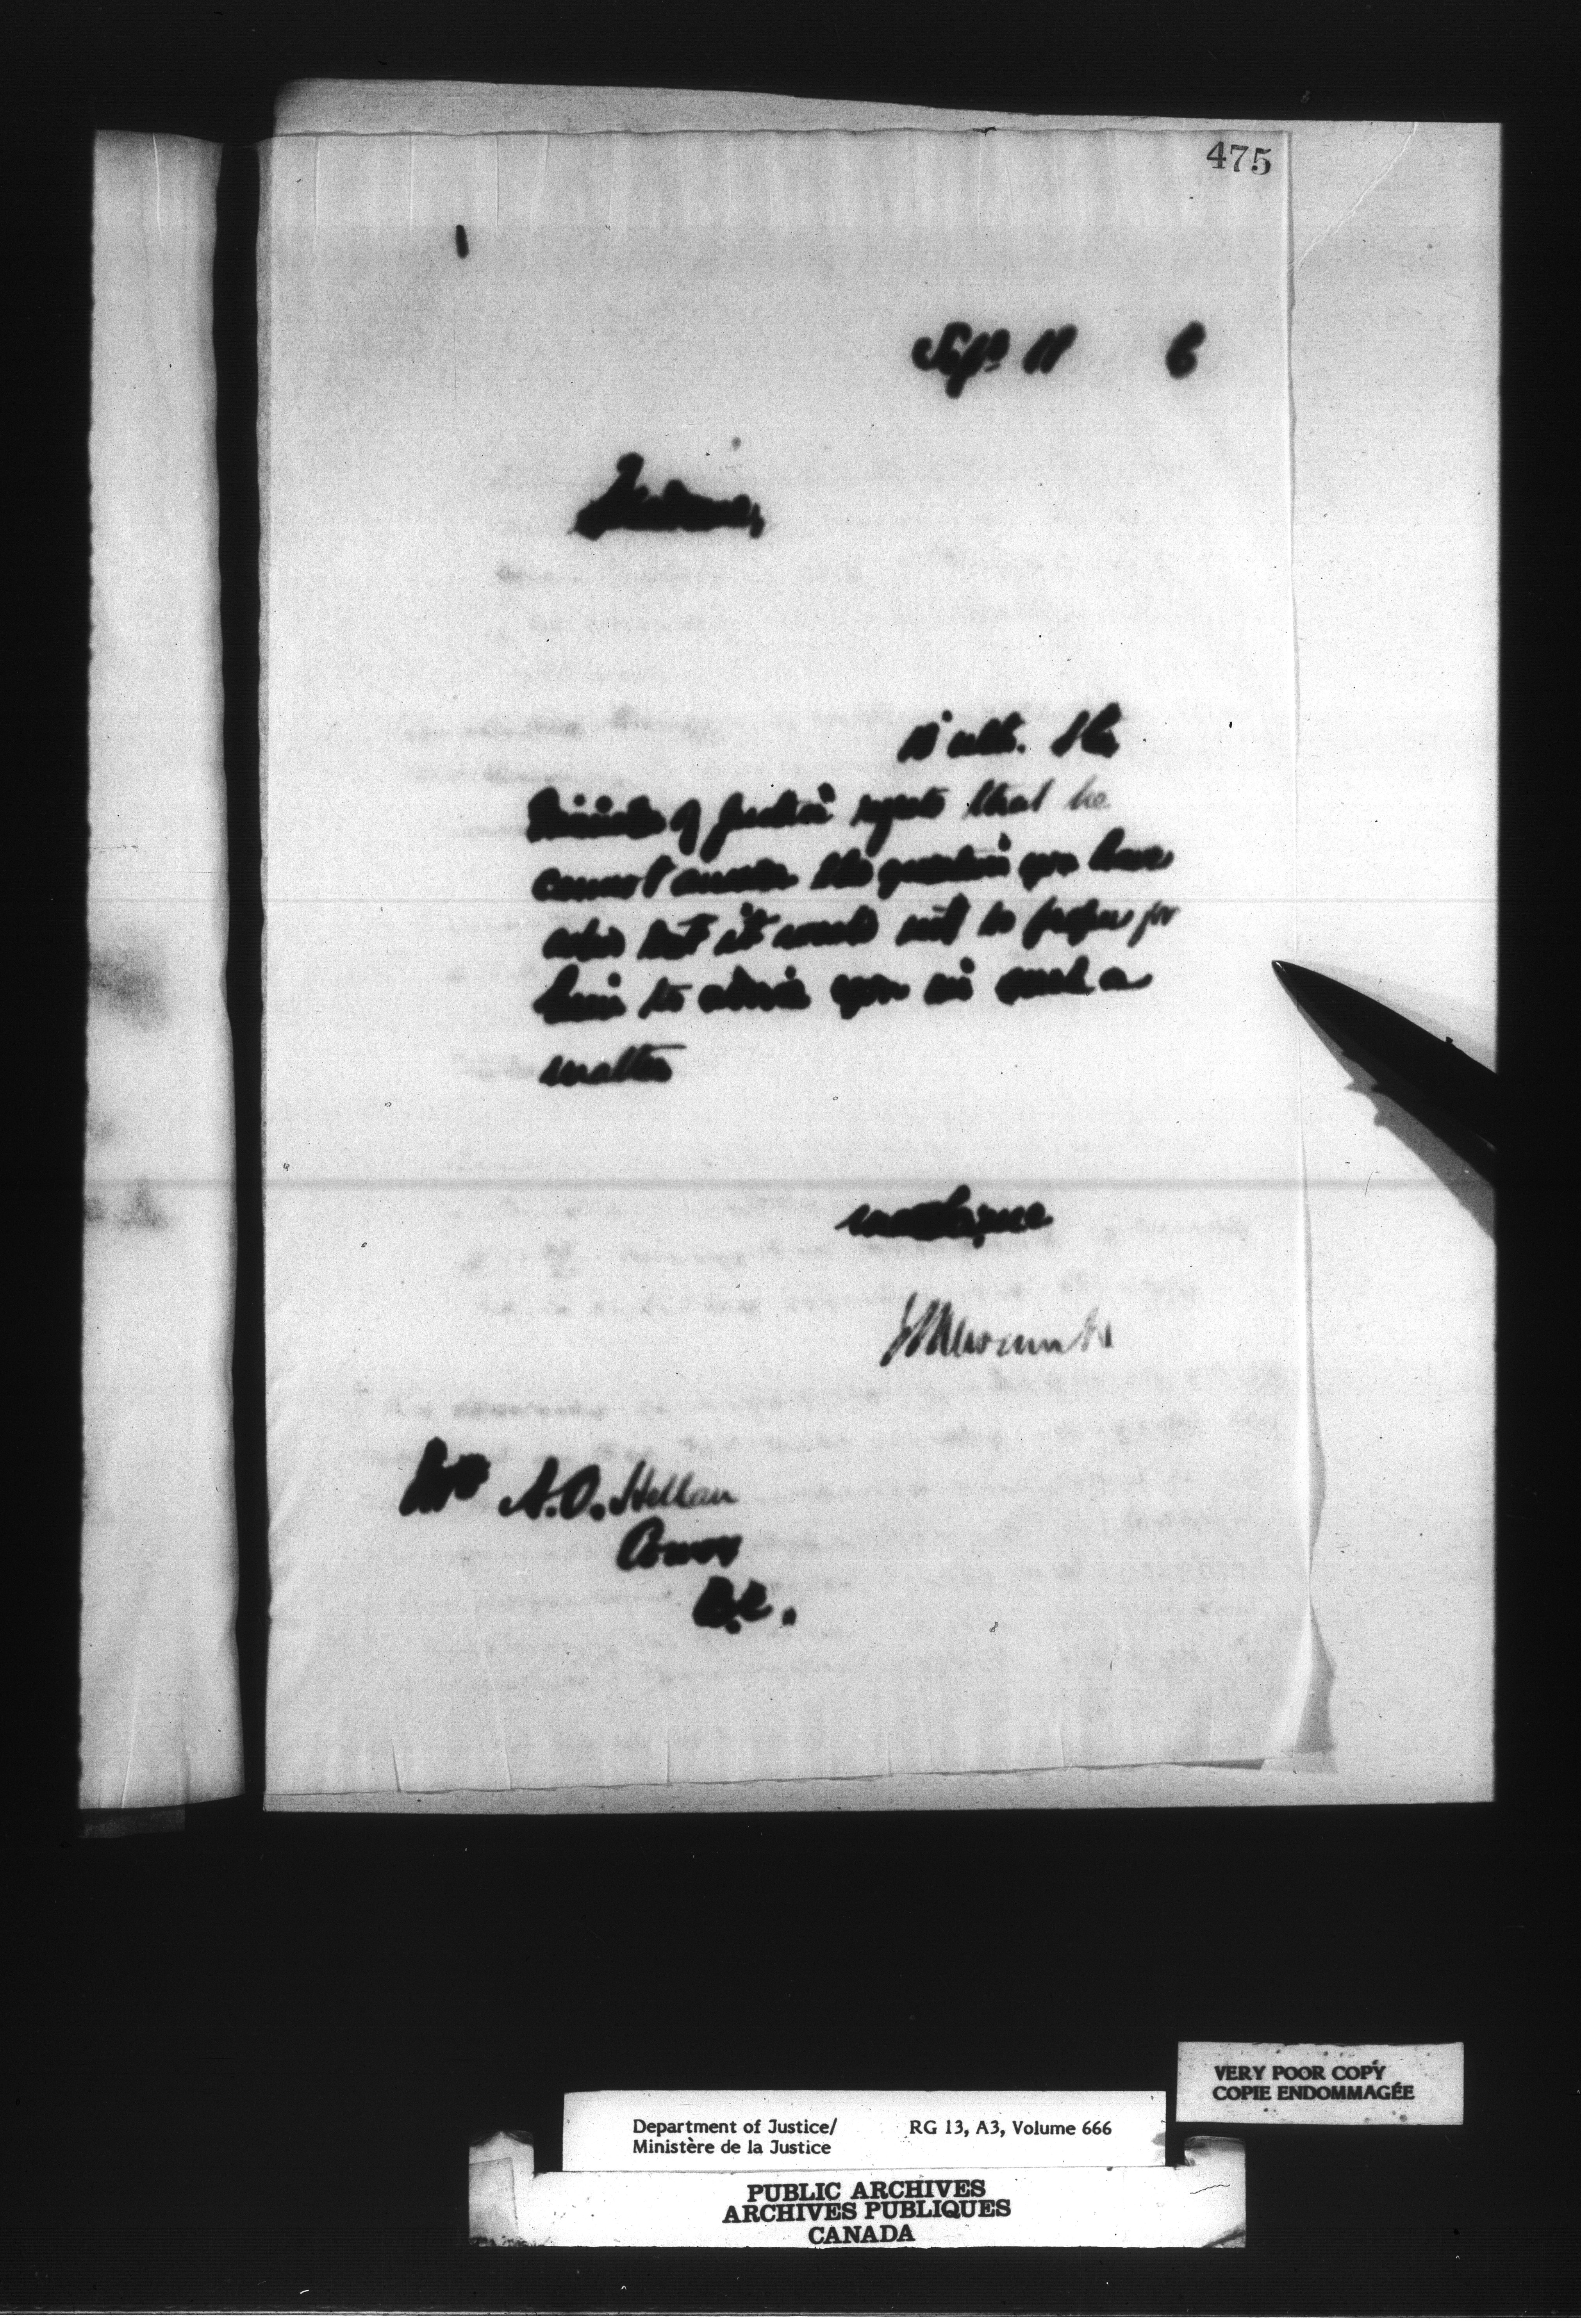 475
Sept 11 6
Madame,
10 ulto. The
Minister of Justice regrets that he
cannot answer the question you have
asked but it would not be proper for
him to advise you in such a
matter
ELNewcombe
Mrs A.O. Hellan
Comox
B.C.
VERY POOR COPY
COPIE ENDOMMAGÉE
Department of Justice/ RG 13, A3, Volume 666
Ministère de la Justice
PUBLIC ARCHIVES
ARCHIVES PUBLIQUES
CANADA